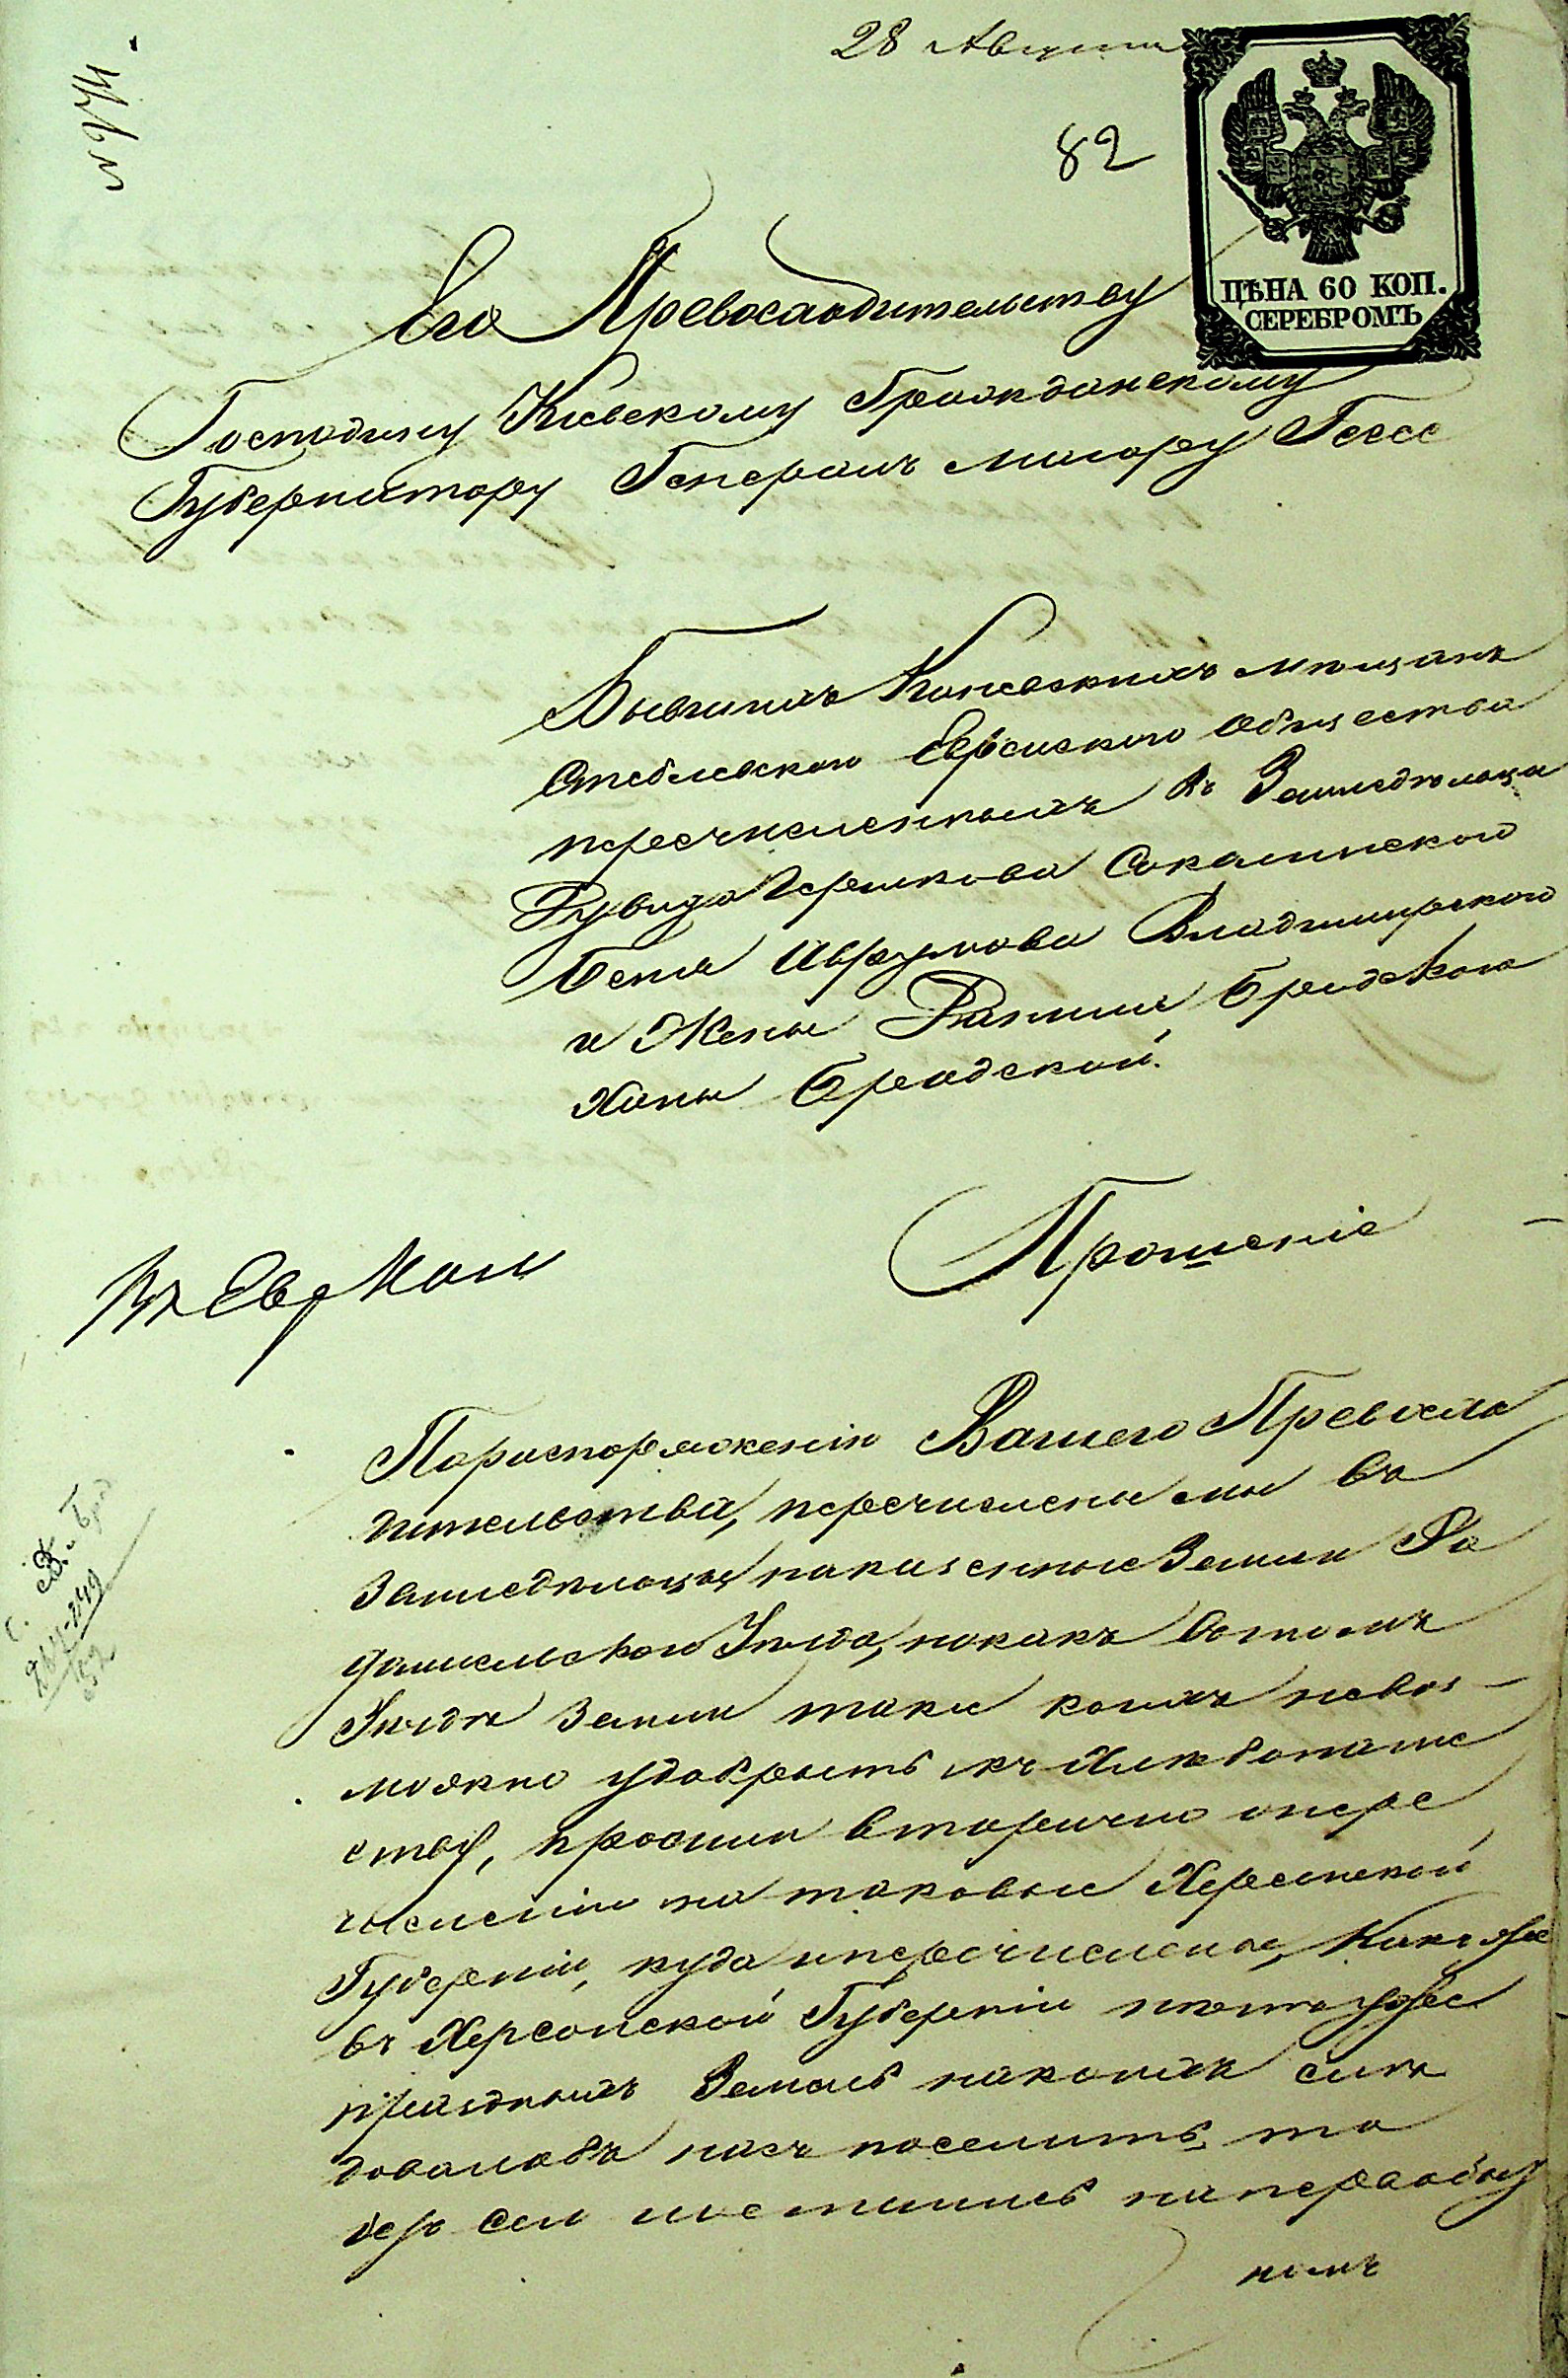 28 Августа
82
ЦѢНА 60 КОП.
СЕРЕБРОМЪ
Его Превосходительству
Господину Кіевскому Гражданскому
Губернатору Генералъ Маіору Гессе
Бывшихъ Каневскихъ мѣщанъ
Стеблевскаго Еврейскаго общества
перечисленныхъ въ Земледѣльцы
Рувида Гершкова Сокалинского
Беня Аврумова Владимирского
и Жены Бродского
Ханы Бродской.
Прошеніе
Въ Евр
Пораспоряженію Вашего Превосхо
дительства, перечислены мы въ
Земледельцы наказенные Земли Ра
домысльского Уезда, нокакъ вотомъ
Уездѣ Земли таки коихъ невоз
можно удобрыть къ Хлебопаше
ству, просили вторично опере
числении на таковые Херсонской
Губерніи, куда иперечислены, Какъ уже
въ Херсонской Губерніи нѣтъ уже
праздныхъ Земель накоихъ слѣ
довалобъ насъ поселить, то
остались напервобыт
номъ